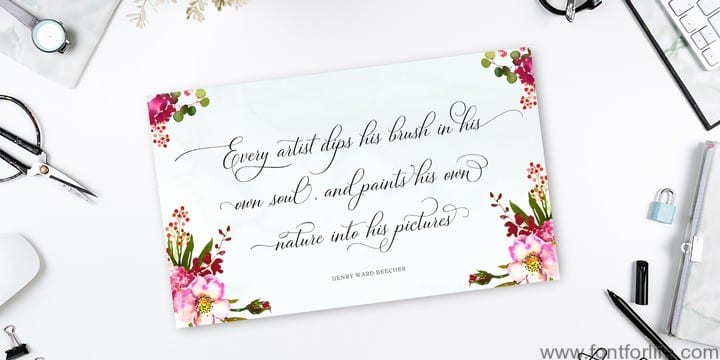 Every artist dips his brush in his
own soul, and paints his own
nature into his pictures
HENRY WARD BEECHER
www.fontforlife.com